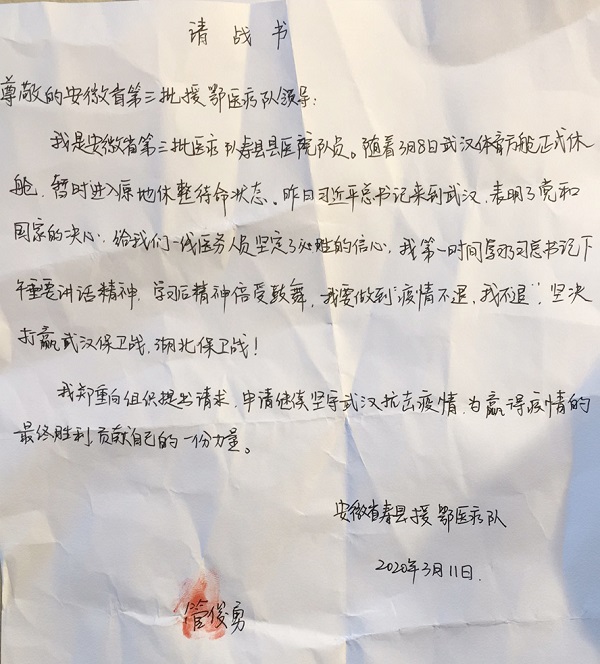 请战书
尊敬的安徽省第三批援鄂医疗队领导:
我是安徽省第三批医疗队寿县县医院队员。随着3月8日武汉体育方舱正式休
舱,暂时进入原地休整待命状态。昨日习近平总书记来到武汉,表明了党和
国家的决心,给我们一线医务人员坚定了必胜的信心,我第一时间学习习总书记下
午重要讲话精神,学习后精神倍受鼓舞,我要做到“疫情不退,我不退”,坚决
打赢武汉保卫战,湖北保卫战!
我郑重向组织提出请求,申请继续坚守武汉抗击疫情,为赢得疫情的
最终胜利贡献自己的一份力量。
安徽省寿县援鄂医疗队
2020年3月11日.
管俊勇